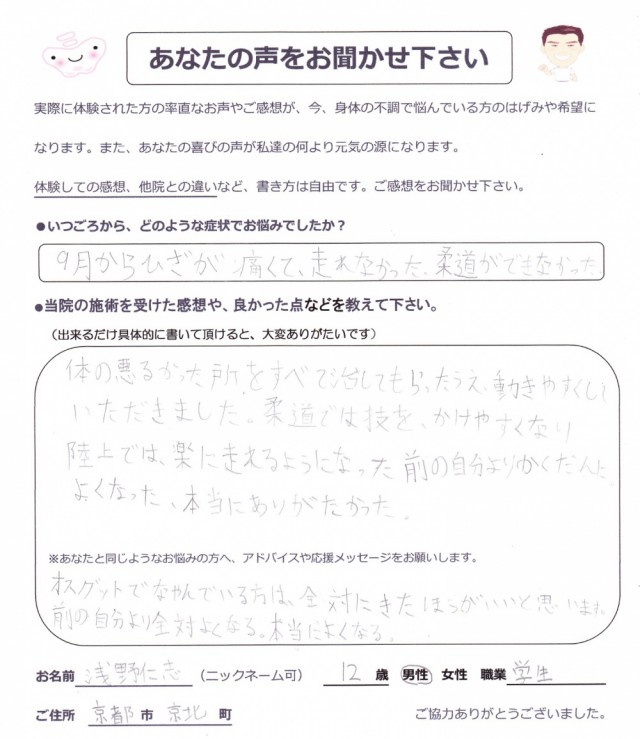 あなたの声をお聞かせ下さい
実際に体験された方の率直なお声やご感想が、今、身体の不調で悩んでいる方のはげみや希望に
なります。また、あなたの喜びの声が私達の何より元気の源になります。
体験しての感想、他院との違いなど、書き方は自由です。ご感想をお聞かせ下さい。
●いつごろから、どのような症状でお悩みでしたか？
9月からひざが痛くて、走れなかった、柔道ができなかった
●当院の施術を受けた感想や、良かった点などを教えて下さい。
（出来るだけ具体的に書いて頂けると、大変ありがたいです）
体の悪るかった所をすべて治してもらったうえ、動きやすくして
いただきました。柔道では技を、かけやすくなり
陸上では、楽に走えるようになった 前の自分よりかくだんに
よくなった、本当にありがたかった。
※あなたと同じようなお悩みの方へ、アドバイスや応援メッセージをお願いします。
オスグットでなやんでいる方は、全対にきたほうがいいと思います。
前の自分より全対よくなる。本当によくなる。
お名前 浅野仁志 （ニックネーム可） 12 歳 男性 女性 職業 学生
ご住所 京都 市 京北 町 ご協力ありがとうございました。